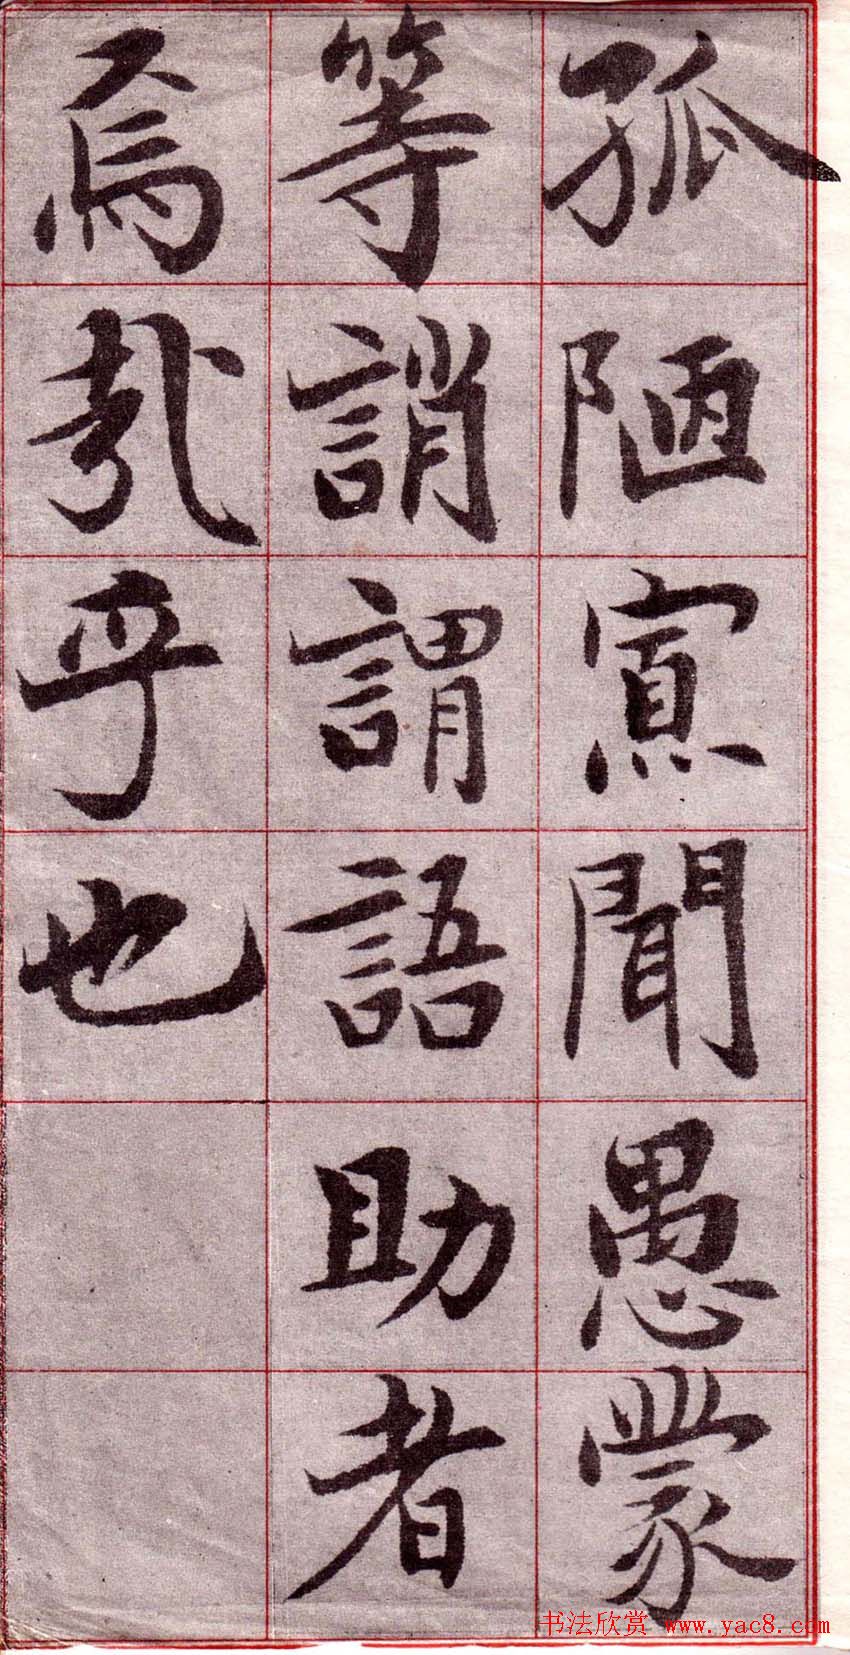 孤陋寡聞愚蒙
等誚謂語助者
焉哉乎也
书法欣赏 www.yac8.com